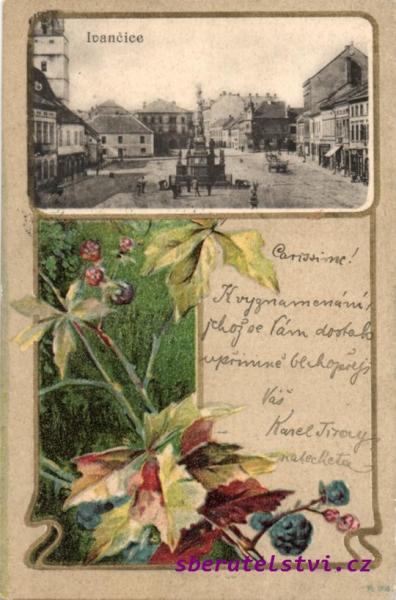 Ivančice
Carissime!
K vyznamenání,
jehož se Vám dostalo
upřímně blahopřeji
Váš
Karel
katecheta
sberutelstvi.cz